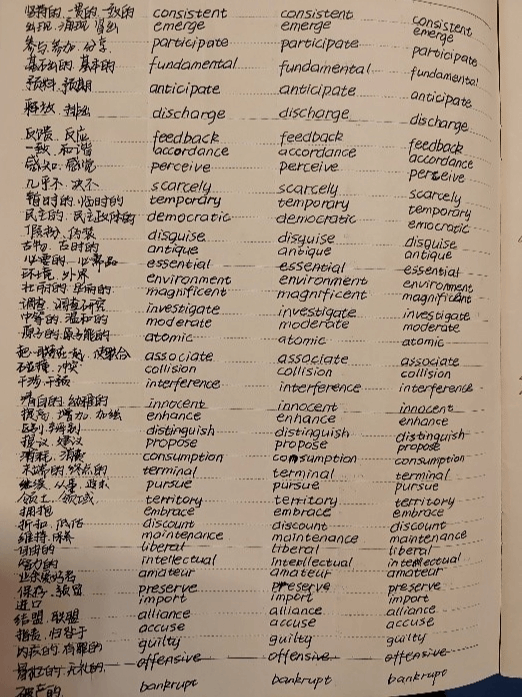 坚持的.一贯的.一致的 consistent consistent consistent
出现.涌现.冒出 emerge emerge emerge
参与.参加.分享 participate participate participate
基础的.基本的 fundamental fundamental fundamental
预料.预期 anticipate anticipate anticipate
释放.排出 discharge discharge discharge
反馈.反应 feedback feedback feedback
一致.和谐 accordance accordance accordance
感知.感觉 perceive perceive perceive
几乎不.决不 scarcely scarcely scarcely
暂时的.临时的 temporary temporary temporary
民主的.民主政体的 democratic democratic emocratic
假扮.伪装 disguise disguise disguise
古物.古时的 antique antique antique
必要的.必需品 essential essential essential
环境.外界 environment environment environment
壮丽的.华丽的 magnificent magnificent magnificent
调查.调查研究 investigate investigate investigate
中等的.温和的 moderate moderate moderate
原子的.原子能的 atomic atomic atomic
associate associate associate
碰撞.冲突 collision collision collision
干涉.干预 interference interference interference
清白的.幼稚的 innocent innocent innocent
提高.增加.加强 enhance enhance enhance
区别.辨别 distinguish distinguish distinguish
提议.建议 propose propose propose
消耗.消费 consumption consumption consumption
末端的.终点的 terminal terminal terminal
继续.从事.追求 pursue pursue pursue
领土.领域 territory territory territory
拥抱 embrace embrace embrace
折扣.低估 discount discount discount
维持.保养 maintenance maintenance maintenance
自由的 liberal liberal liberal
智力的 intellectual intellectual intellectual
业余爱好者 amateur amateur amateur
保存.预留 preserve preserve preserve
进口 import import import
结盟.联盟 alliance alliance alliance
指责.归咎于 accuse accuse accuse
内疚的.有罪的 guilty guilty guilty
冒犯的.无礼的 offensive offensive offensive
破产的 bankrupt bankrupt bankrupt